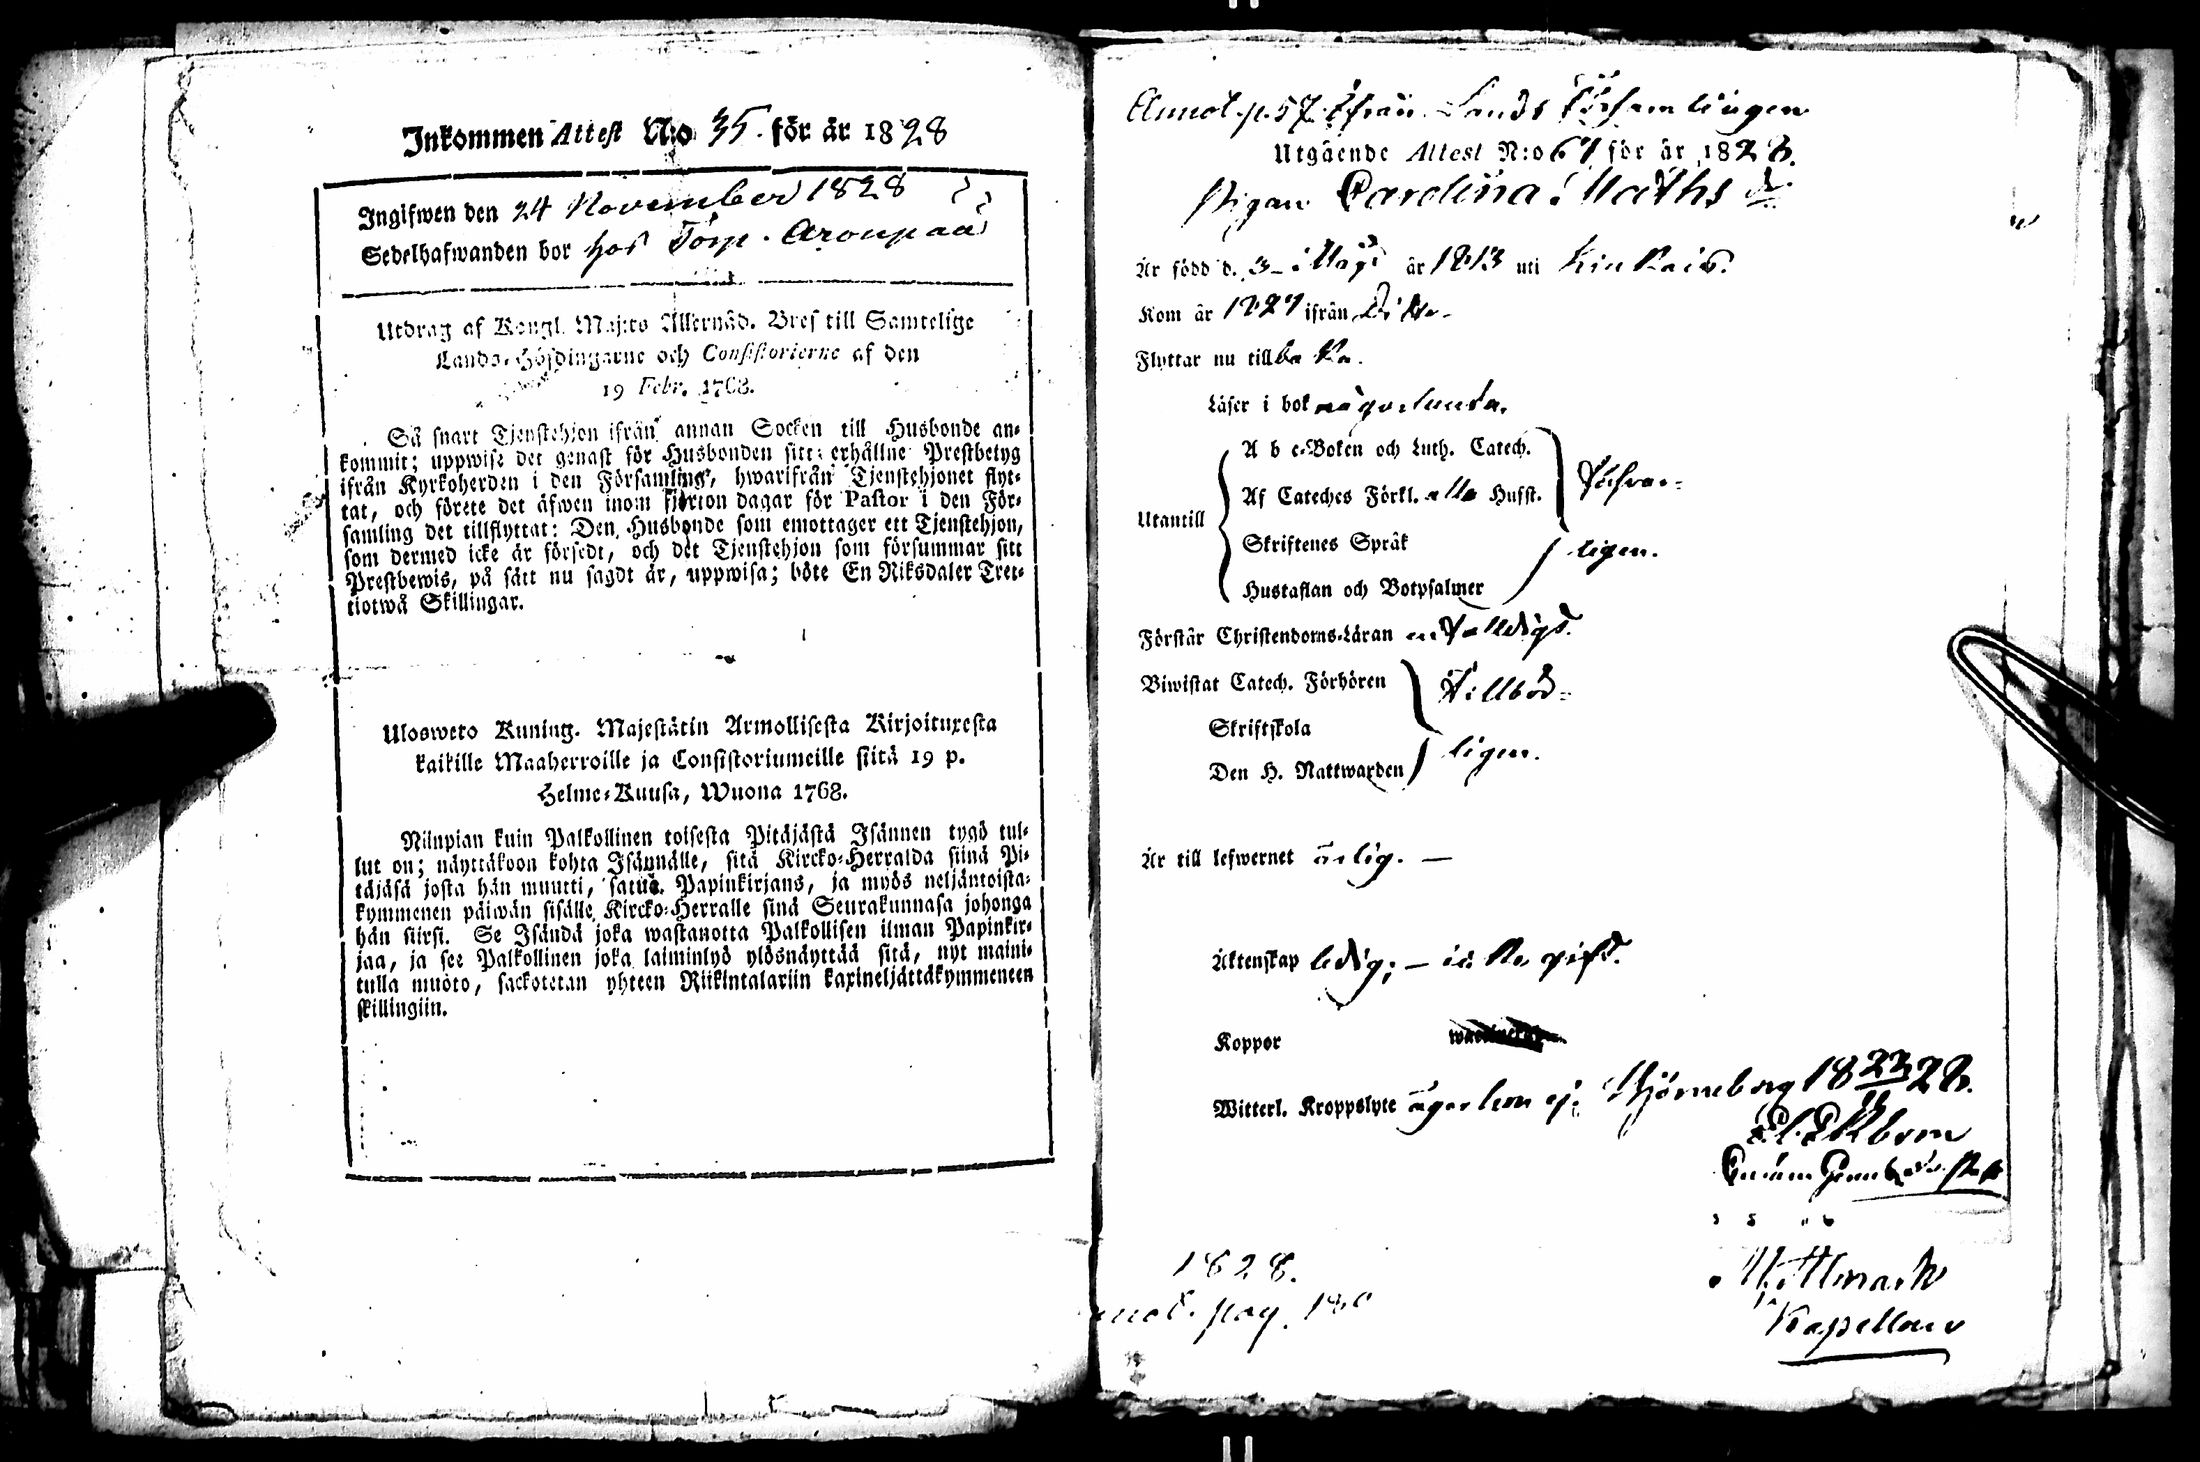 Inkommen Attest N:o 35. för år 1828
Ingifwen den 24 November 1828
Sedelhafwanden bor hos Torp. Aroupää
Utdrag af Kongl. Maj:ts Allernåd. Bref till Samtelige
Lands-Höfdingarne och Consistorierne af den
19 Febr. 1768.
Så snart Tjenstehjon ifrån annan Socken till Husbonde an-
kommit; uppwise det genast för Husbonden sitt erhållne Prestbetyg
ifrån Kyrkoherden i den Församling, hwarifrån Tjenstehjonet flyt-
tat, och förete det äfwen inom fjorton dagar för Pastor i den För-
samling det tillflyttat: Den Husbonde som emottager ett Tjenstehjon,
som dermed icke är försedt, och det Tjenstehjon som försummar sitt
Prestbewis, på sätt nu sagdt är, uppwisa; böte En Riksdaler Tret-
tiotwå Skillingar.
Ulosweto Kuning. Majestätin Armollisesta Kirjoituxesta
kaikille Maaherroille ja Consistoriumeille siitä 19 p.
Helme-Kuusa, Wuona 1768.
Niinpian kuin Palkollinen toisesta Pitäjästä Isännen tygö tul-
lut on; näyttäkoon kohta Isännälle, sitä Kircko-Herralda siinä Pi-
täjäsä josta hän muutti, satua Papinkirjans, ja myös neljäntoista-
kymmenen päiwän sisälle Kircko-Herralle sinä Seurakunnasa johonga
hän siirsi. Se Isändä joka wastanotta Palkollisen ilman Papinkir-
jaa, ja see Palkollinen joka laiminlyö ylösnäyttää sitä, nyt maini-
tulla muoto, sackotetan yhteen Riikintalariin kaxineljättäkymmeneen
skillingiin.
Annot. p. 57. Ifrån Lands Församlingen
Utgående Attest N:o 67 för år 1828.
Pigan Carolina Maths dr.
Är född d. 3 Maji år 1813 uti Kiukais.
Kom år 1827 ifrån
Flyttar nu tillbaka.
Läser i bok någorlunda.
A b c-Boken och Luth. Catech.
Af Cateches Förkl. alla Hufst.
Utantill
Försvar-
Skriftenes Språk
ligen.
Hustaflan och Botpsalmer
Förstår Christendoms-Läran enfaldigt.
Biwistat Catech. Förhören
Tillbör-
Skriftskola
ligen.
Den H. Nattwarden
Är till lefwernet ärlig. —
Äktenskap ledig; — icke gift.
Koppor
Witterl. Kroppslyte äger hon ej. Björneborg 18 23/11 28.
Ekbom
1828.
pag. 180
Kapellan